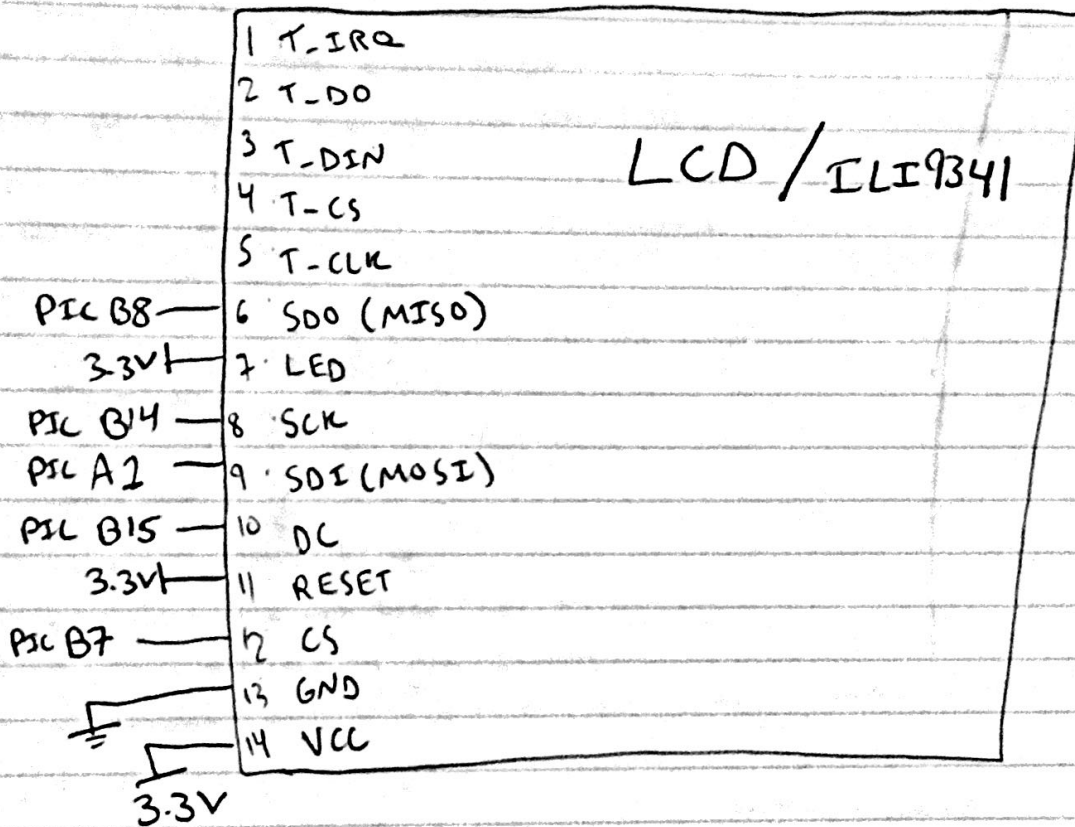 1 T_IRQ
2 T_DO
3 T_DIN
LCD / ILI9341
4 T-CS
5 T-CLK
PIC B8 6 SDO (MISO)
3.3V 7 LED
PIC B14 8 SCK
PIC A2 9 SDI (MOSI)
PIC B15 10 DC
3.3V 11 RESET
PIC B7 12 CS
13 GND
14 VCC
3.3V